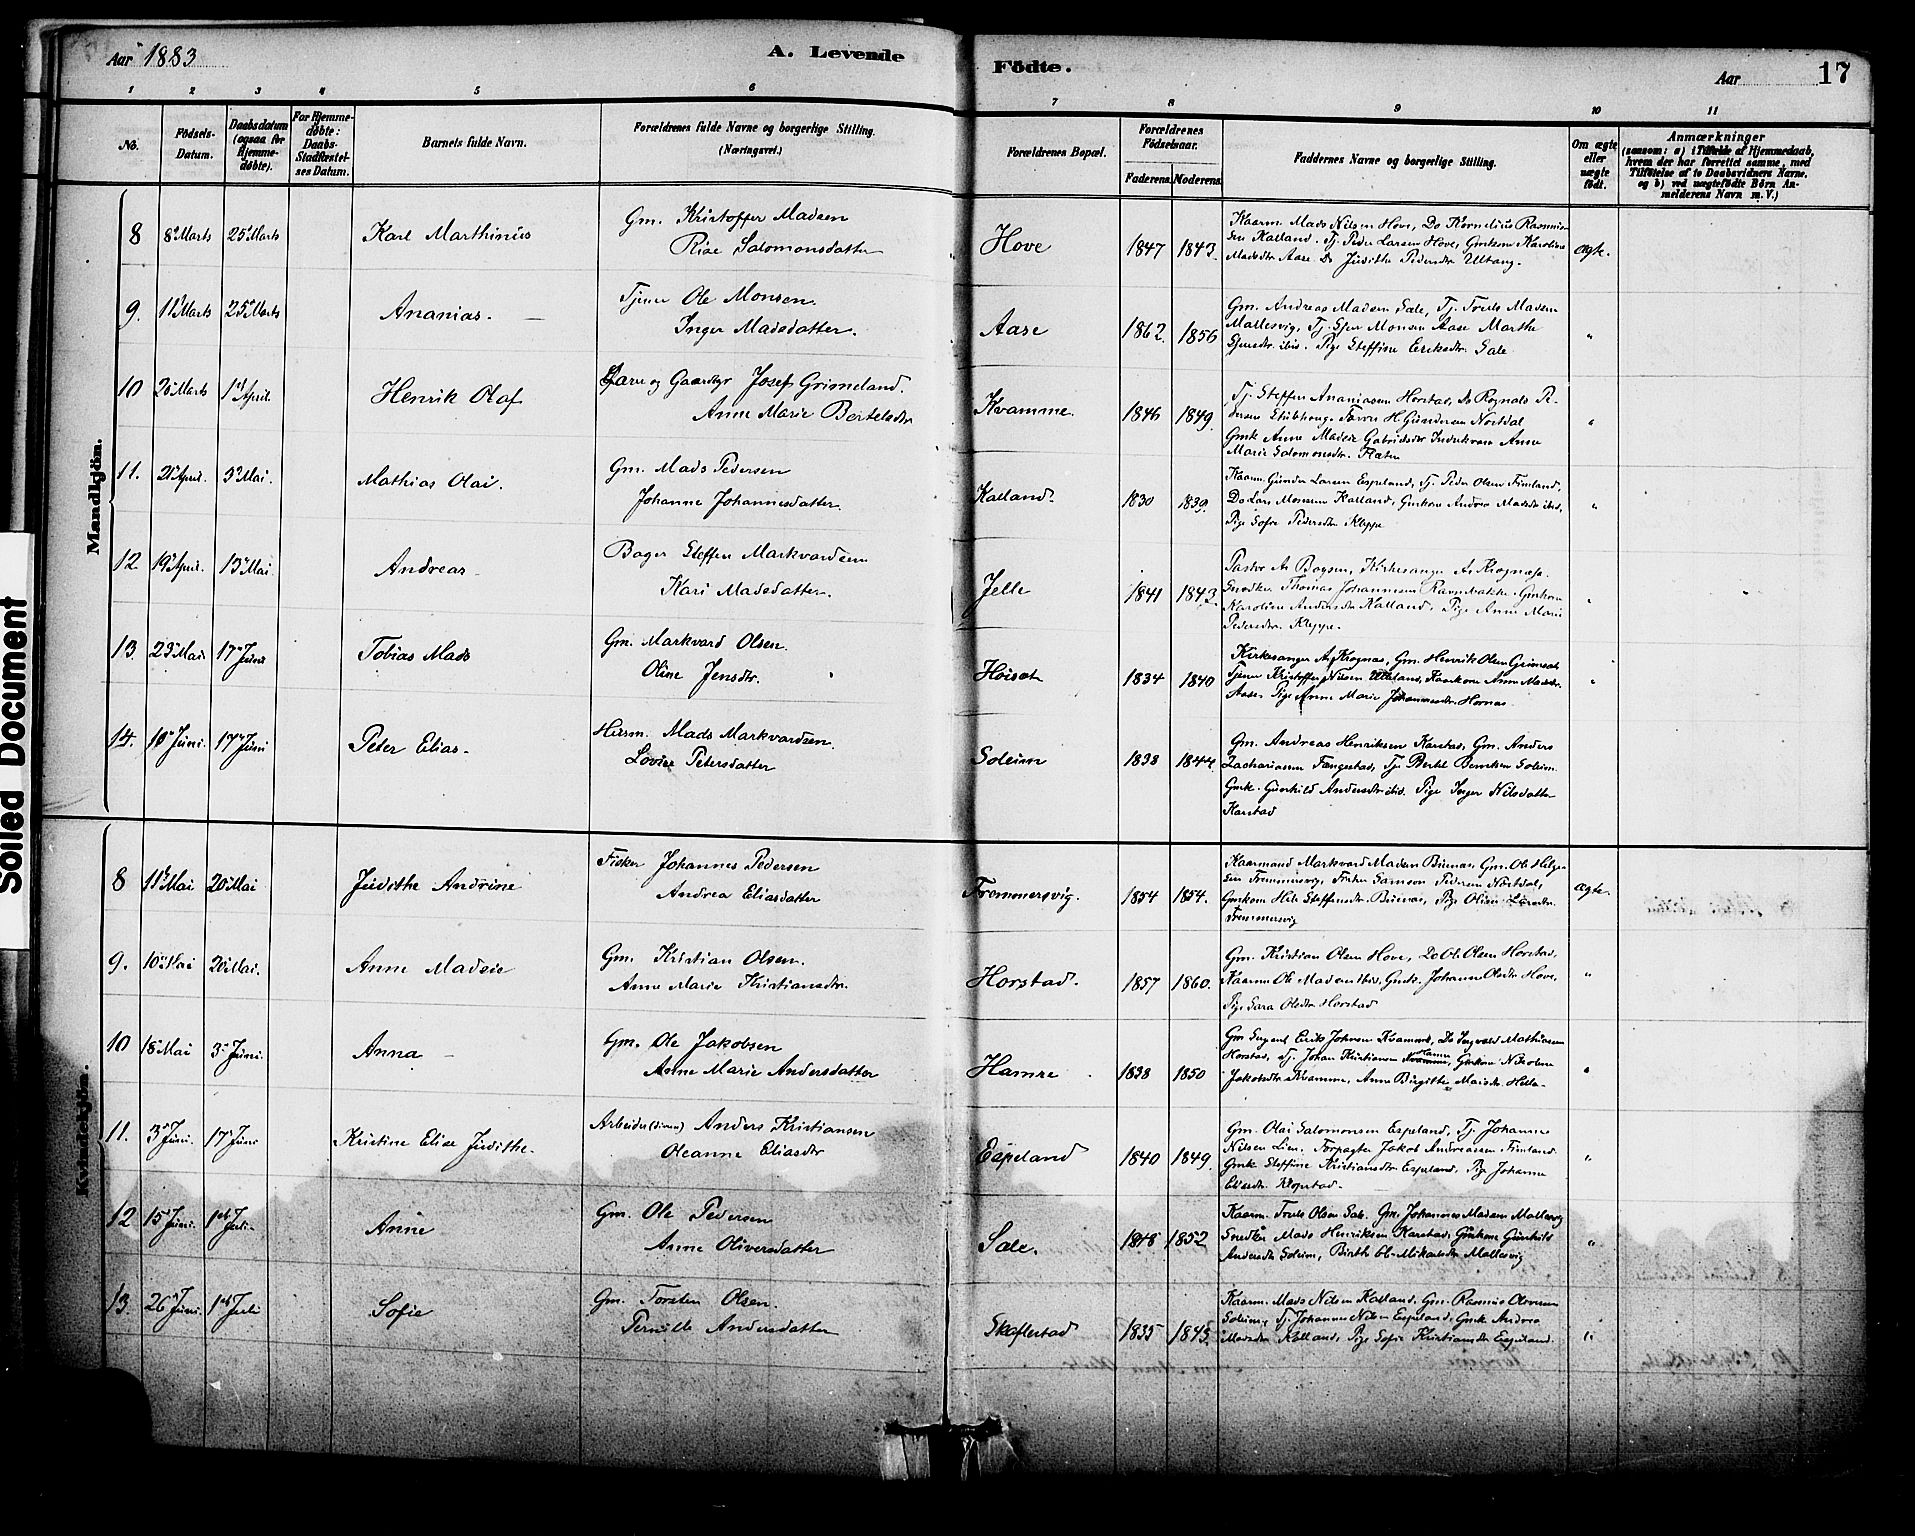 Aar 1883
A. Levende
Födte.
Aar
17
1 2 3 4 5 6 7 8 9 10 11
No.
Födsels-
Datum.
Daabsdatum
(ogsaa for
Hjemme-
döbte).
For Hjemme-
döbte:
Daabs-
Stadfæstel-
ses Datum.
Barnets fulde Navn.
Forældrenes fulde Navne og borgerlige Stilling.
(Næringsvei.)
Forældrenes Bopæl.
Forældrenes
Födselsaar.
Faderens. Moderens.
Faddernes Navne og borgerlige Stilling.
Om ægte
eller
uægte
födt.
Anmærkninger
(saasom: a) i Tilfælde af Hjemmedaab,
hvem der har forrettet samme, med
Tilföielse af to Daabsvidners Navne.
og b) ved uægtefödte Börn An-
melderens Navn m.V.)
Mandkjön.
8 8de Marts 25de Marts Karl Marthinius
Gm. Kristoffer Madsen
Rise Salomonsdatter
Hove 1847 1843.
Kaarm. Mads Nilsen Hove, Do Kornelius Rasmus-
sen Kalland. Tj. Peder Larsen Hove, Gmkone Karoline
Madsdtr Aase Do Judithe Pedersdtr Ultang.
ægte.
9. 11te Marts 25de Marts Ananias.
Tjener Ole Monsen.
Inger Madsdatter.
Aase 1862. 1856
Gm. Andreas Madsen Sale, Tj. Truls Madsen
Mallesvig, Tj. Gjer Monsen Aase Marthe
Gjersdtr. ibid. Pige Steffine Eriksdtr. Sale
"
10 Marts 1ste April. Henrik Olaf
og Gaardbgr Josef Grimeland.
Anne Marie Bertelsdtr
Kvamme. 1846 1849.
Tj. Steffen Ananiassen Horstad, Do Rognald Pe-
dersen Stubhoug. H. Gundersen Nordal
Gmk Anne Madsie Gabrielsdtr Indrekvam Anne
Marie Salomonsdtr. Flaten
"
11. April. 3die Mai. Mathias Olai.
Gm. Mads Pedersen
Johanne Johannesdatter.
Kalland. 1830 1839.
Kaarm Gunder Larsen Espeland, Tj. Peder Olsen Fimland,
Do Lars Monsen Kalland, Gmkone Andrea Madsdtr ibid,
Pige Sofie Pedersdtr Kleppe
"
12. 19de April. 13de Mai Andreas
Bager Steffen Markvardsen
Kari Madsdatter.
Jelle 1841 1843.
Pastor As Boysen, Kirkesanger As Krognæs.
Snedker Thomas Johannessen Ravnebakke. Gmkone
Karoline Andersdtr Kalland, Pige Anne Marie
Pedersdtr. Kleppe.
"
13. 29de Mai 17de Juni Tobias Mads
Gm. Markvard Olsen.
Oline Jensdtr.
1834 1840
Kirkesanger As Krognæs, Gm. Henrik Olsen
Tjener Kristoffer Nilsen, Kaarkone Anne Madsdtr.
Aase. Pige Anne Marie Johannesdtr. Hornæs
"
14. 10de Juni. 17de Juni Peter Elias.
Husm. Mads Markvardsen
Lovise Petersdatter
Soleim 1838 1844.
Gm. Andreas Henriksen Karstad, Gm. Anders
Zachariassen Tangestad, Tj. Bertil Berntsen Soleim.
Gmk. Gunhild Andersdtr ibid. Pige Inger Nilsdatter
Karstad
Kvindekjön.
8 11te Mai 20de Mai Judithe Andrine
Fisker Johannes Pedersen
Andrea Eliasdatter
Fremmersvig. 1854 1854.
Kaarmand Markvard Madsen Buenæs, Gm. Ole Helge-
sen Fremmersvig, Fisker Samson Pedersen Nordal,
Gmkone Steffensdtr. Buenæs, Pige Oline Larsdtr.
Fremmersvig
ægte.
9. 10de Mai 20de Mai. Anne Madsie
Gm. Kristian Olsen.
Anne Marie Kristiansdtr.
Horstad. 1857 1860.
Gm. Kristian Olsen Hove, Do Ole Olsen Horstad,
Kaarm Ole Madsen ibid, Gmk. Johanne Olsdtr Hove,
Pige Sara Olsdtr. Horstad
"
10 18de Mai 3die Juni. Anna
Gm. Ole Jakobsen
Anne Marie Andersdatter
Hamre 1838 1850
Gm Sergent Erik Johnsen Kvamme, Do Ingvald Mathiassen
Horstad, Tj. Johan Kristiansen Kvamme Hamre, Gmkone Nikoline
Jakobsdtr Kvamme, Anne Birgitte Helle
"
11. 3die Juni. 17de Juni Kristine Elise Judithe
Arbeider Anders Kristiansen
Oleanne Eliasdtr
Espeland 1840 1849.
Gm. Olai Salomonsen Espeland, Tj. Johannes
Nilsen Lien. Forpagter Jakob Andreassen Fimland
Gmk Steffine Kristiansdtr Espeland, Pige Johanne
Eliasdtr. Klopstad.
"
12 15de Juni. 1ste Juli Anne
Gm. Ole Pedersen
Anne Oliversdatter
Sale. 1848 1852
Kaarm. Truls Olsen Sale. Gm. Johannes Madsen Mallesvig
Snedker Mads Henriksen Karstad, Gmkone Gunhild
Andersdtr Soleim, Mikalsdtr Mallesvig
"
13. 26de Juni. 1ste Juli Sofie
Gm. Torsten Olsen.
Pernille Andersdatter
Skaflestad 1835 1843.
Kaarm. Mads Nilsen Kalland, Gm. Rasmus Olsen
Soleim, Tj. Johannes Nilsen Espeland, Gmk Andrea
Madsdtr Kalland, Pige Sofie Kristiansdtr Espeland.
"
Soiled Document